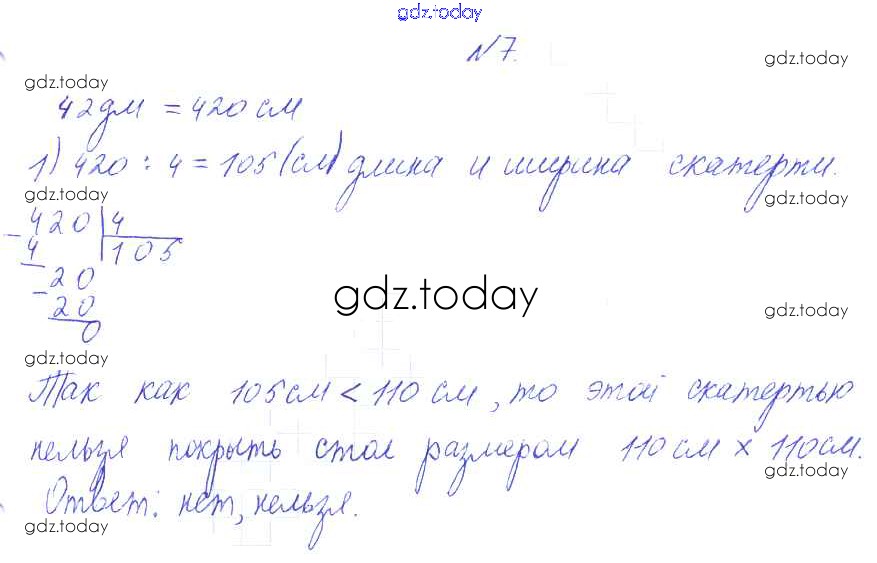 gdz.today
№7.
gdz.today
gdz.today
42дм = 420 см
1) 420 : 4 = 105 (см) длина и ширина скатерти.
gdz.today
gdz.today
- 420 | 4
4 | 105
- 20
20
0
gdz.today
gdz.today
gdz.today
Так как 105 см < 110 см, то этой скатертью
нельзя покрыть стол размером 110 см × 110 см.
gdz.today
Ответ: нет, нельзя.
gdz.today